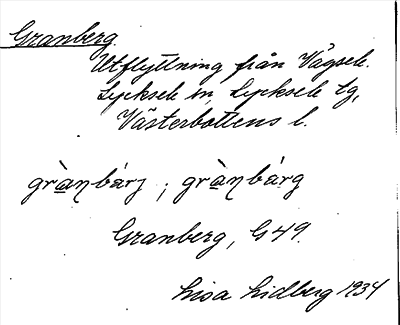 Granberg.
Utflyttning från Vägsele.
Lycksele sn, Lycksele tg,
Västerbottens l.
grànbárj ; grànbárg
Granberg, G49.
Lisa Lidberg 1934